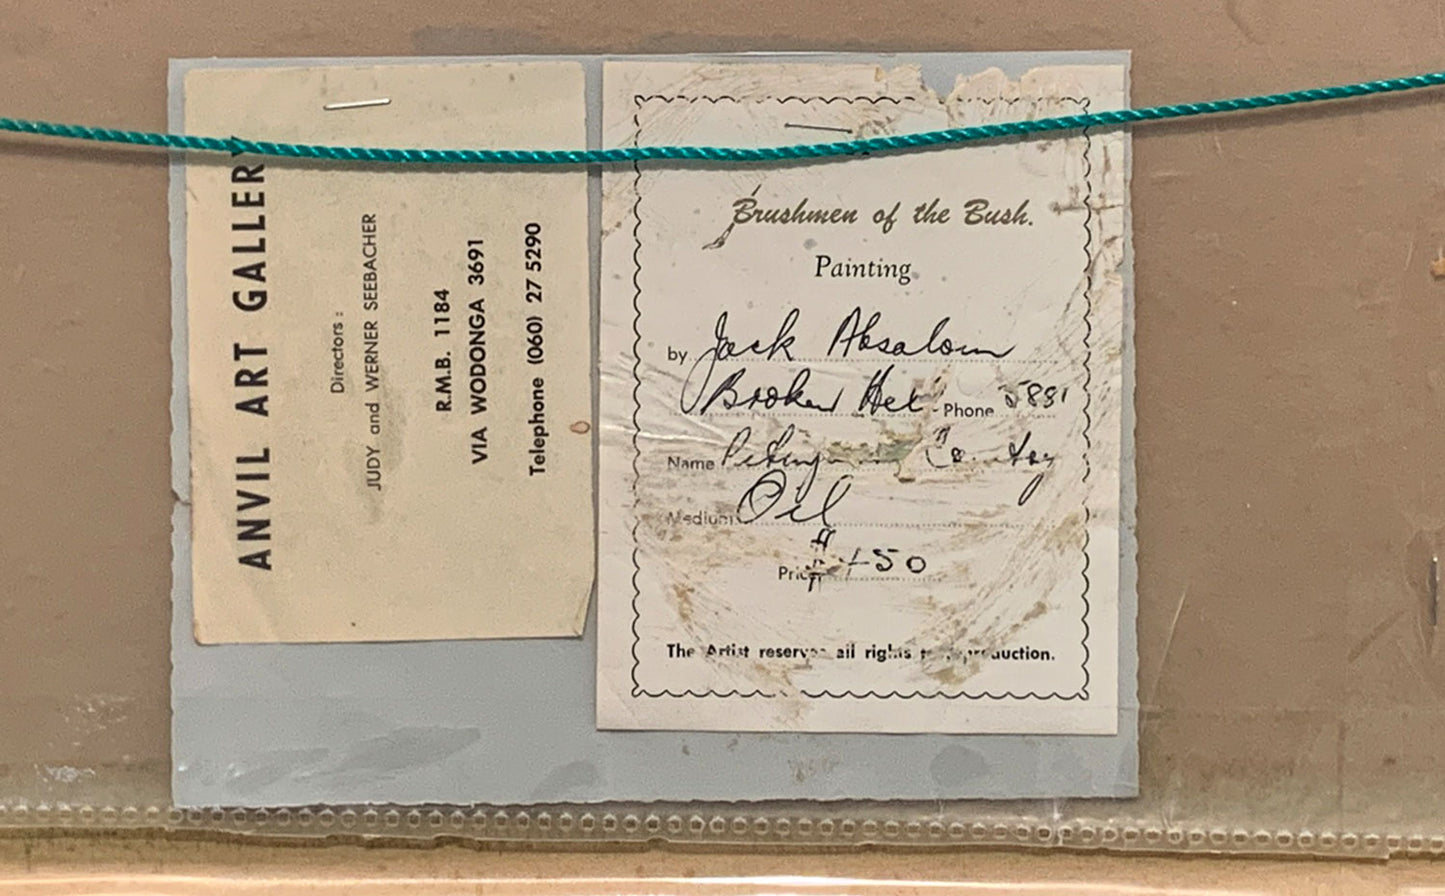 ANVIL ART GALLERY
Directors:
JUDY and WERNER SEEBACHER
R.M.B. 1184
VIA WODONGA 3691
Telephone (060) 27 5290
Brushmen of the Bush.
Painting
by Jack Absalom
Broken Phone 5881
Name
Medium Oil
Price $450
The Artist reserves all rights reproduction.